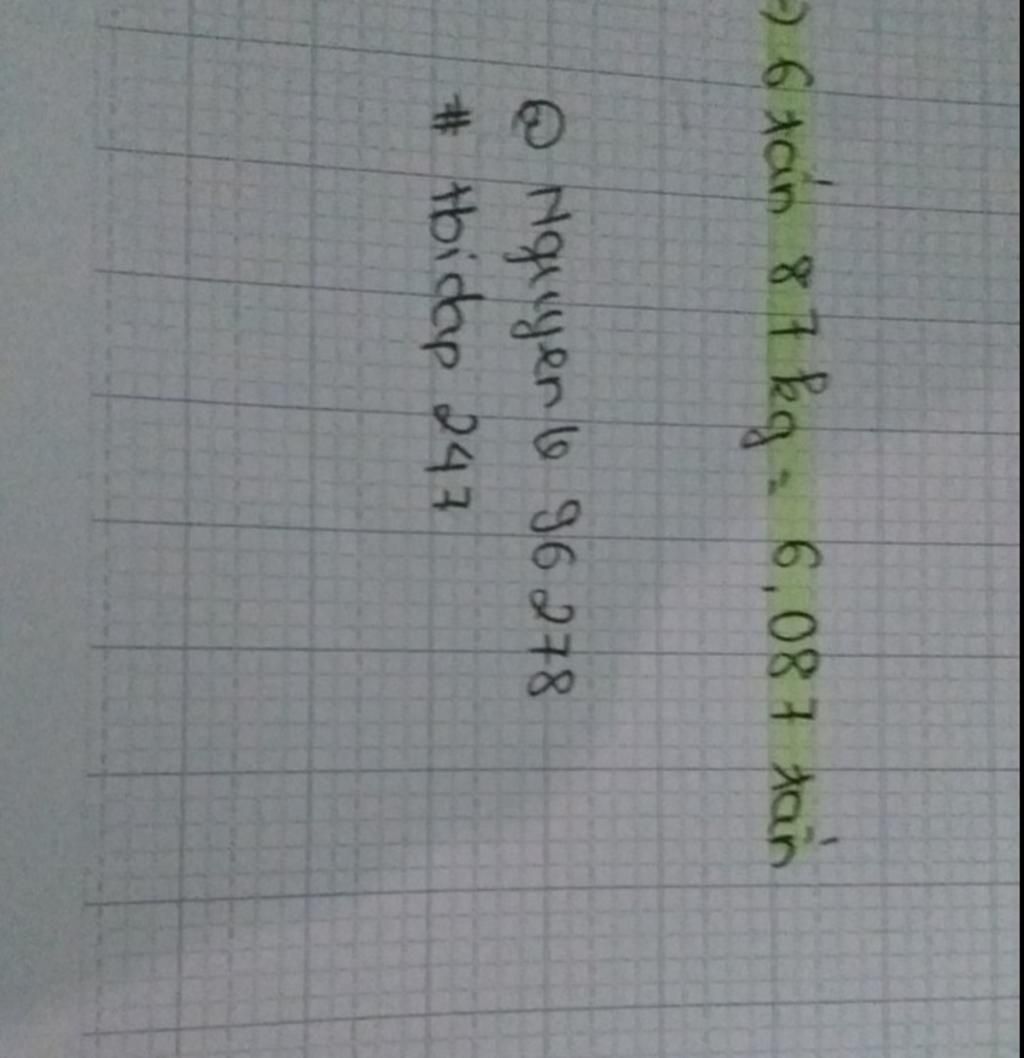 =) 6 tấn 87 kg = 6,087 tấn
@ Nguyenle 96278
# Hoidap 247